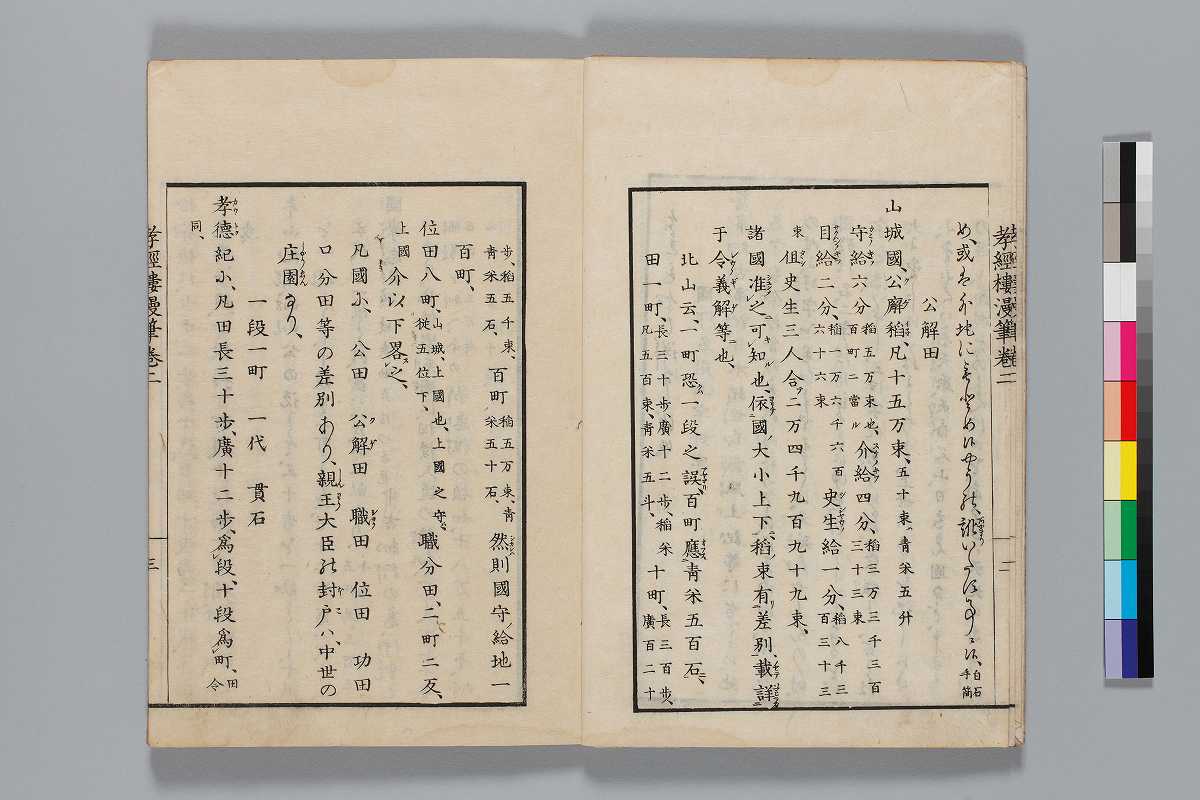 孝經樓漫筆卷二
公解田
山城國、公廨稻、凡十五万束、五十束、青米五舛
守給六分、稻五万束也、百町二當ル、介給四分、稻三万三千三百三十三束
目給二分、稻一万六千六百六十六束 史生給一分、稻八千三百三十三
束 但史生三人合二万四千九百九十九束、
諸國准之可知也、依國大小上下稻束有差別、載詳
于令義解等也、
北山云、一町恐一段之誤、百町應青米五百石、
田一町、長三十步、廣十二步、稻米十町、長三百步、廣百二十
凡五百束、青米五斗、
步、稻五千束、青米五石、百町、稻五万束、青米五十石、然則國守給地一
百町、
位田八町、山城、上國也、上國之守、從五位下、職分田、二町二反、
上國介以下畧之、
凡國ニ、公田 公解田 職田 位田 功田
口分田等の差別あり、親王大臣の封戸ハ、中世の
庄園なり、
一段一町 一代 貫石
孝德紀ニ、凡田長三十步、廣十二步爲段、十段爲町、田令
同、
孝經樓漫筆卷二
三